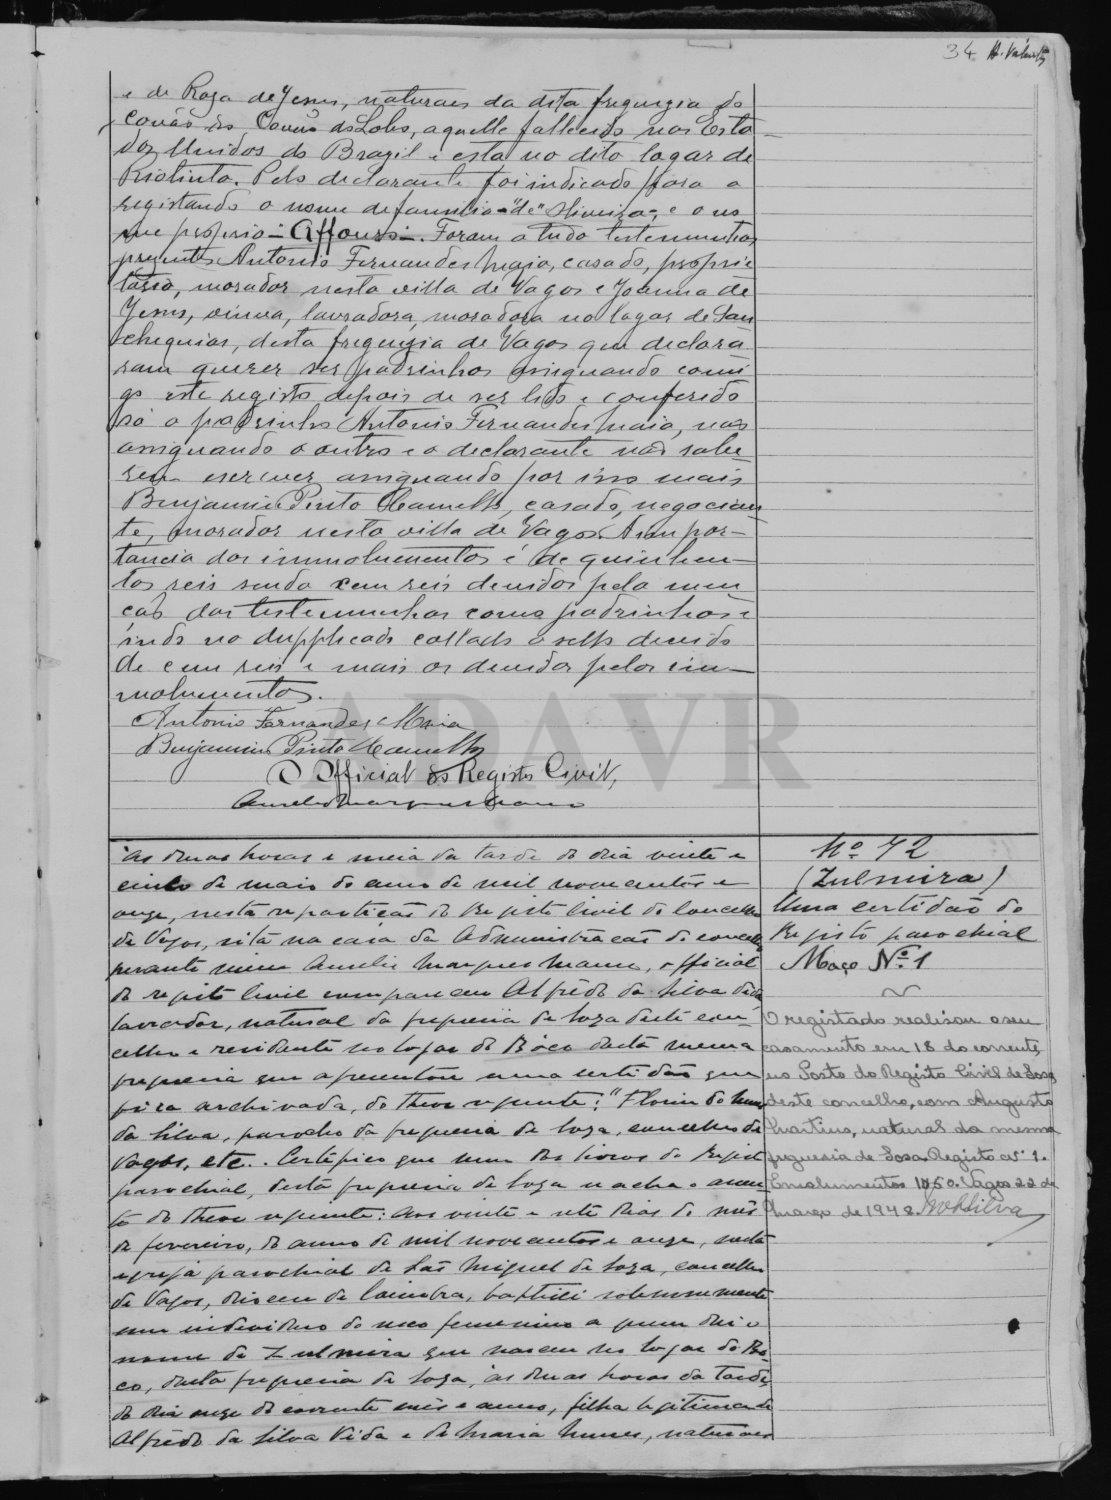 34 A. Valente
e de Roza de Jesus, naturaes da dita freguezia de
Covão do Lobo, aquelle fallecido nos Esta-
dos Unidos do Brazil e esta no dito logar de
Riotinto. Pelo declarante foi indicado para o
registando o nome de familia - "de" Oliveira -, e o no
me proprio - Affonso -. Foram a tudo testemunhas
prezentes Antonio Fernandes Maia, casado, proprie
tario, morador nesta villa de Vagos e Joanna de
Jesus, viuva, lavradora, moradora no logar de San
chequias, desta freguezia de Vagos que declara
ram querer ser padrinhos assignando comi
go este registo depois de ser lido e conferido
só o padrinho Antonio Fernandes Maia, não
assignando o outro e o declarante não sabe
rem escrever assignando por isso mais
Benjamim Pinto Camello, casado, negocian
te, morador nesta villa de Vagos. A impor-
tancia dos immolumentos é de quinhen-
tos reis sendo cem reis devidos pela men
ção das testemunhas como padrinhos e
indo no dupplicado collado o sello devido
de cem reis e mais os devidos pelos im-
molumentos.
Antonio Fernandes Maia
Benjamim Pinto Camello
O Official do Registo Civil,
Aurelio Marques Mano
ADAVR
As duas horas e meia da tarde do dia vinte e
cinco de maio do anno de mil novecentos e
onze, nesta repartição do Registo Civil do Concelho
de Vagos, sita na casa da Administração do concelho
perante mim Aurelio Marques Mano, official
do registo civil compareceu Alfredo da Silva Vida
lavrador, natural da freguezia de Soza deste con-
celho e residente no logar do Bôco desta mesma
freguezia que apresentou uma certidão que
fica archivada, do theor seguinte: "Florim do Nunes
da Silva, parocho da freguezia de Soza, concelho de
Vagos, etc.. Certifico que num dos livros do Registo
parochial, desta freguezia de Soza se acha o assen-
to do theor seguinte: Aos vinte e sete dias do mês
de fevereiro, do anno de mil novecentos e onze, nesta
egreja parochial de São Miguel de Soza, concelho
de Vagos, diocese de Coimbra, baptisei solemnemente
um individuo do sexo femenino a quem dei o
nome de Zulmira que nasceu no logar do Bo-
co, desta freguezia de Soza, ás duas horas da tarde,
do dia onze do corrente mês e anno, filha legitima de
Alfredo da Silva Vida e de Maria Nunes, naturaes
Nº 72
(Zulmira)
Uma certidão do
Registo parochial
Maço Nº 1
O registado realisou o seu
casamento em 18 do corrente,
no Posto do Registo Civil de Sosa
deste concelho, com Augusto
Martins, natural da mesma
freguesia de Sosa. Registo nº 1.
Emolumentos 1$50. Vagos 22 de
Março de 1948.